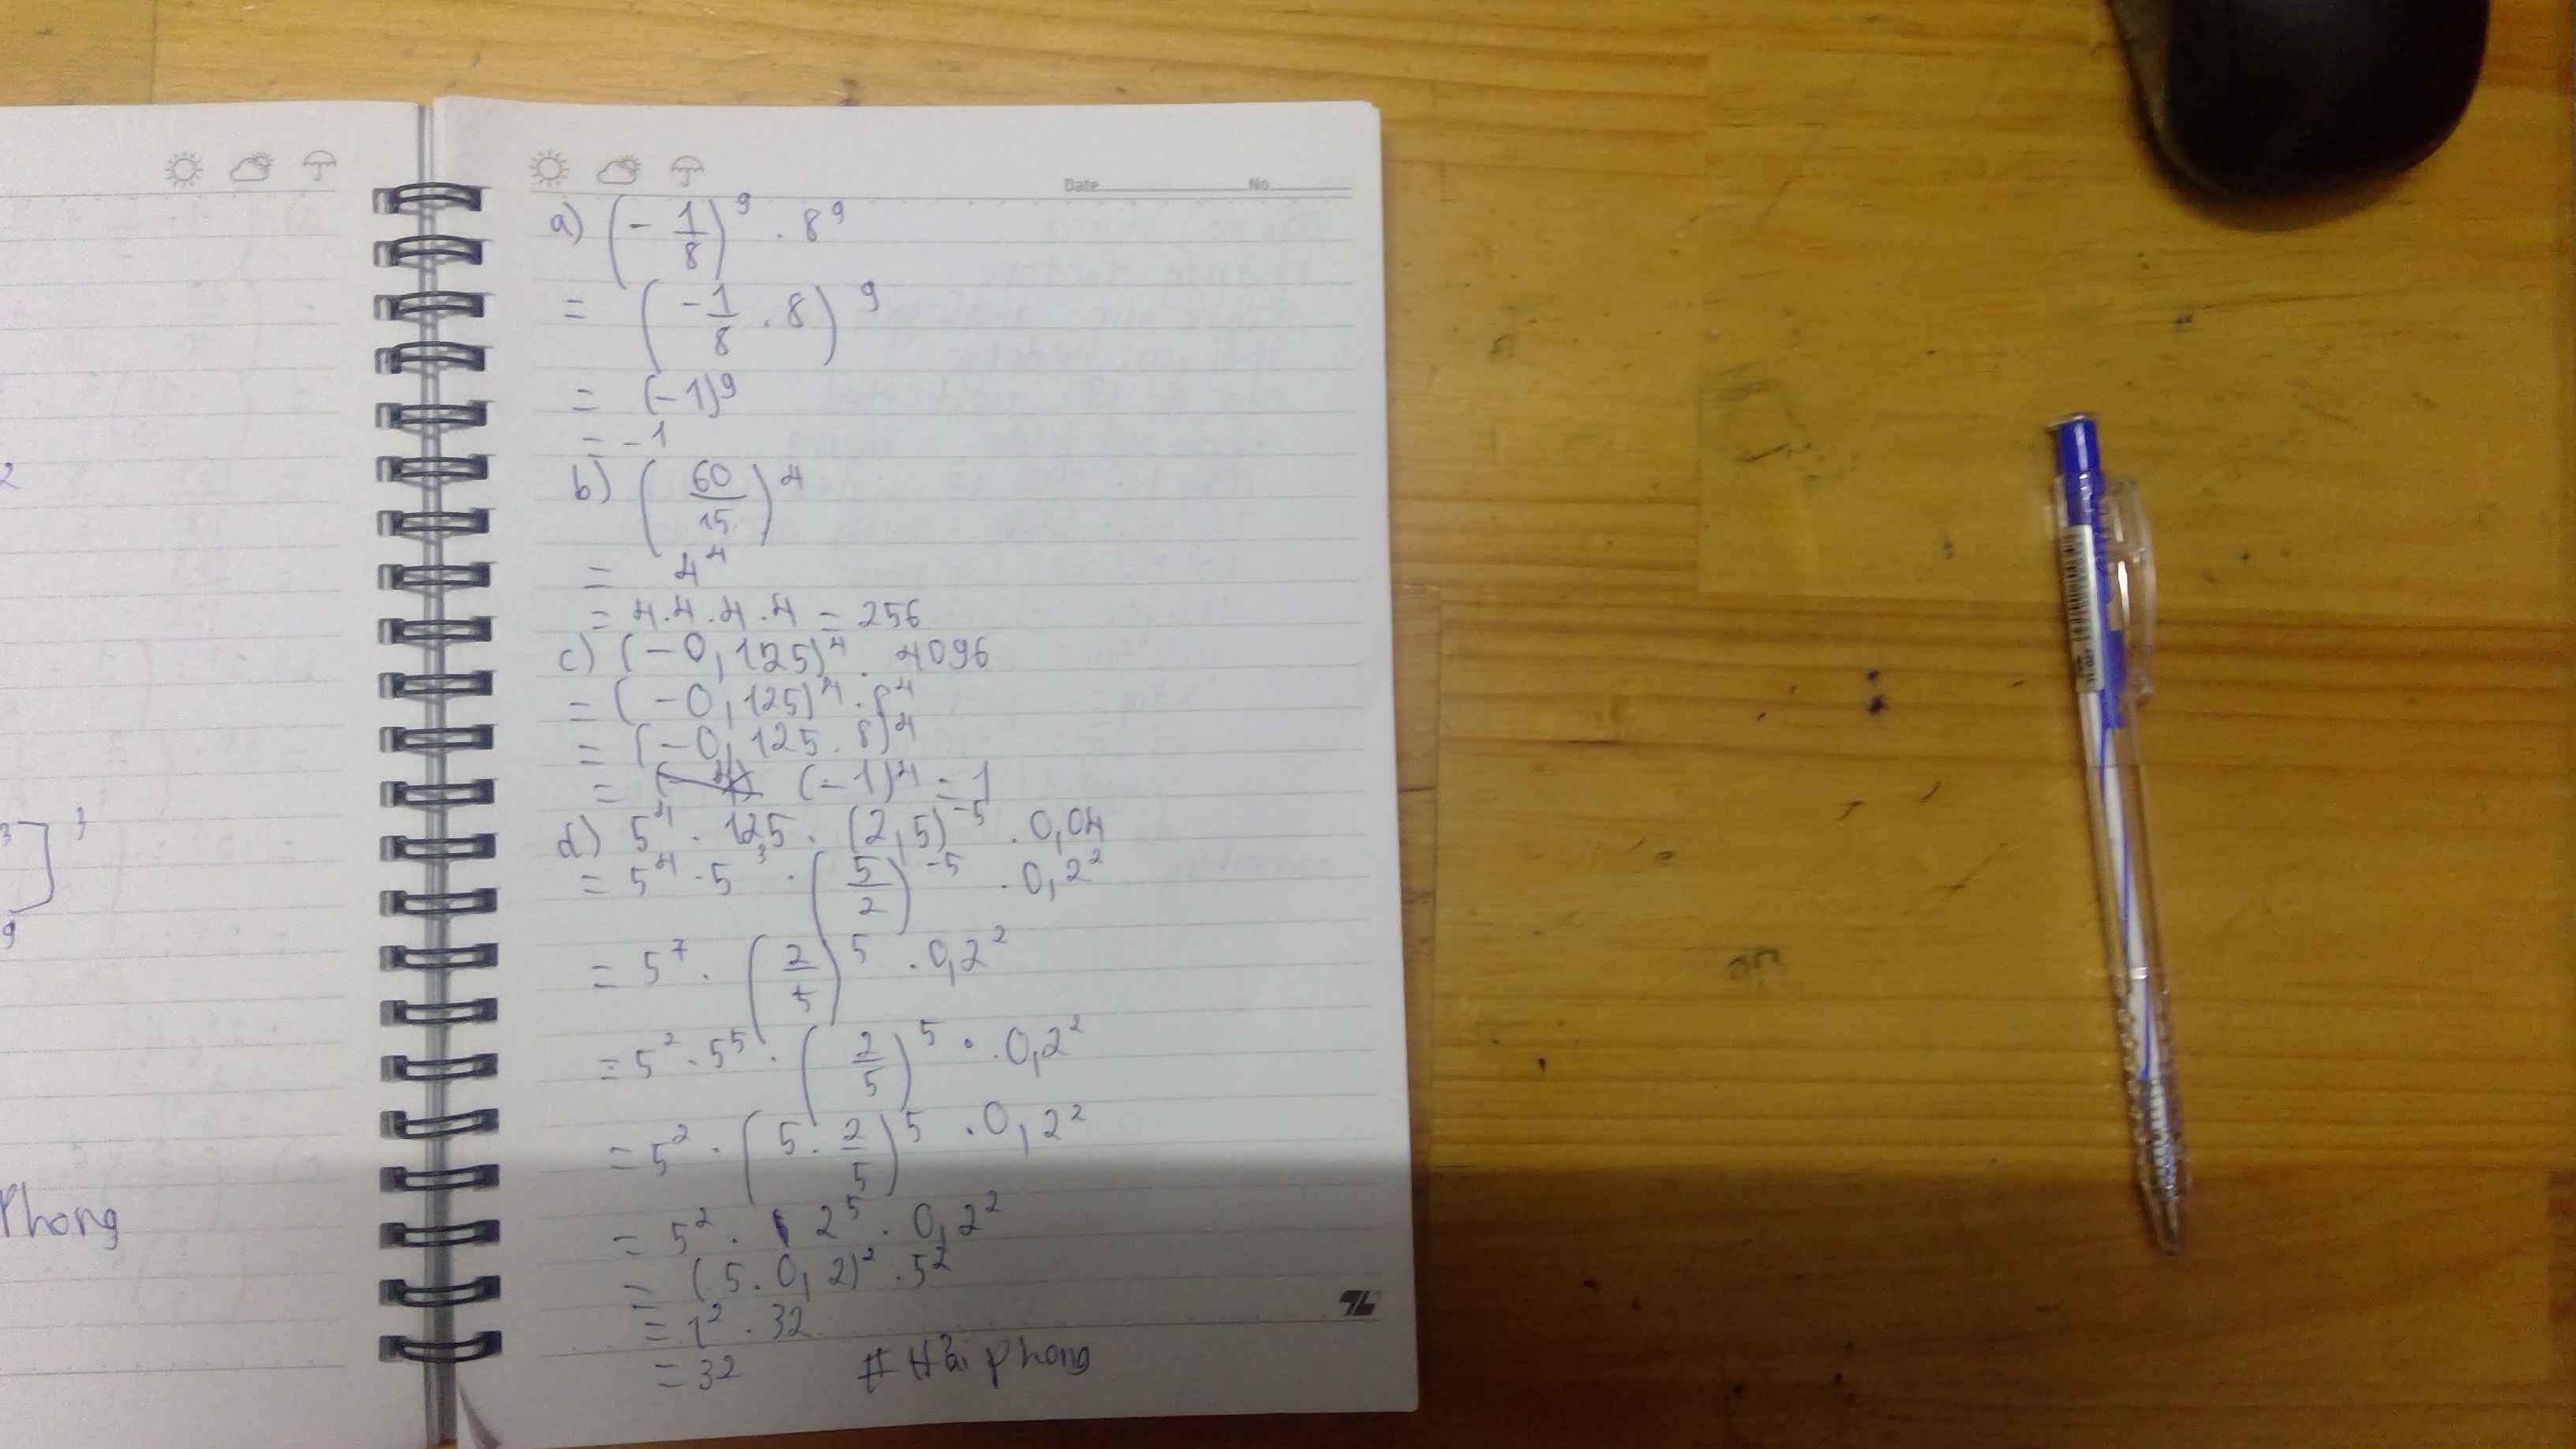 2
3 ] 3
9
Phong
Date No.
a) (- 1/8)^9 . 8^9
= (-1/8 . 8)^9
= (-1)^9
= -1
b) (60/15)^4
= 4^4
= 4.4.4.4 = 256
c) (-0,125)^4 . 4096
= (-0,125)^4 . 8^4
= (-0,125 . 8)^4
= (-1)^4 = 1
d) 5^4 . 125 . (2,5)^-5 . 0,04
= 5^4 . 5^3 . (5/2)^-5 . 0,2^2
= 5^7 . (2/5)^5 . 0,2^2
= 5^2 . 5^5 . (2/5)^5 . 0,2^2
= 5^2 . (5 . 2/5)^5 . 0,2^2
= 5^2 . 2^5 . 0,2^2
= (5 . 0,2)^2 . 5^2
= 1^2 . 32
= 32 # Hải Phong